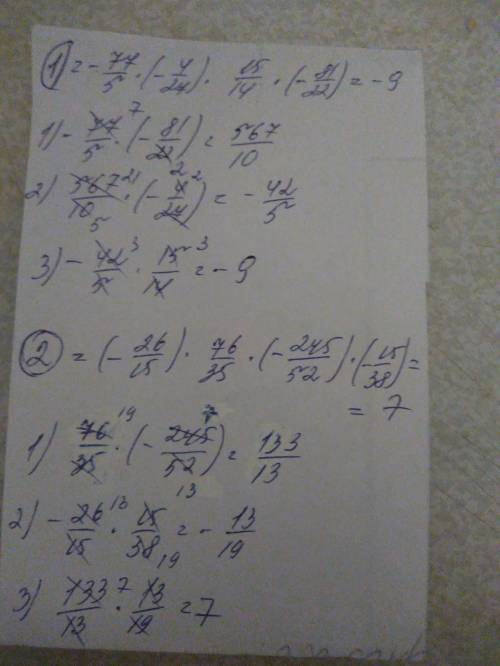 1 = - 77/5 · (- 4/27) · 15/14 · (- 81/22) = - 9
1) - 77/5 · 7 (- 81/22) = 567/10
2
2) 567/10 21 · (- 4/27 2) = - 42/5
5
3) - 42/5 3 · 15/14 3 = - 9
2 = (- 26/15) · 76/35 · (- 245/52) · (15/38) =
= 7
1) 76/35 19 · (- 245/52 7) = 133/13
13
2) - 26/15 13 · 15/38 = - 13/19
19
3) 133/13 7 · 13/19 = 7